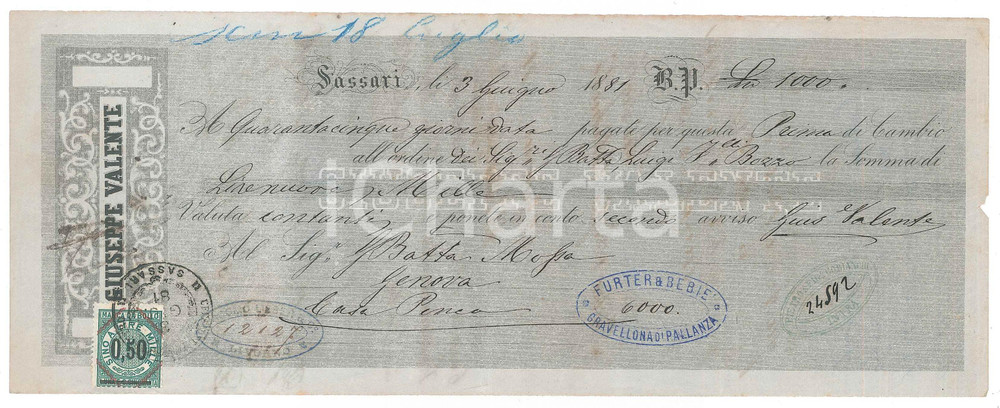 Scad 18 Luglio
Sassari, li 3 Giugno 1881 B.P. Ln 1000.
A Quarantacinque giorni data pagate per questa Prima di Cambio
all'ordine dei Sig.ri G Batta Luigi F.lli Bozzo la Somma di
Lire nuove Mille
Valuta contanti e ponete in conto secondo avviso Gius.e Valente
Al Sig.r G Batta Mossa
Genova
Casa Penco 6000.
GIUSEPPE VALENTE
SASSARI
81
MARCA DA BOLLO
SINO A LIRE MILLE
0,50
12127
FURTER & BEBIE
GRAVELLONA DI PALLANZA
24892
charta